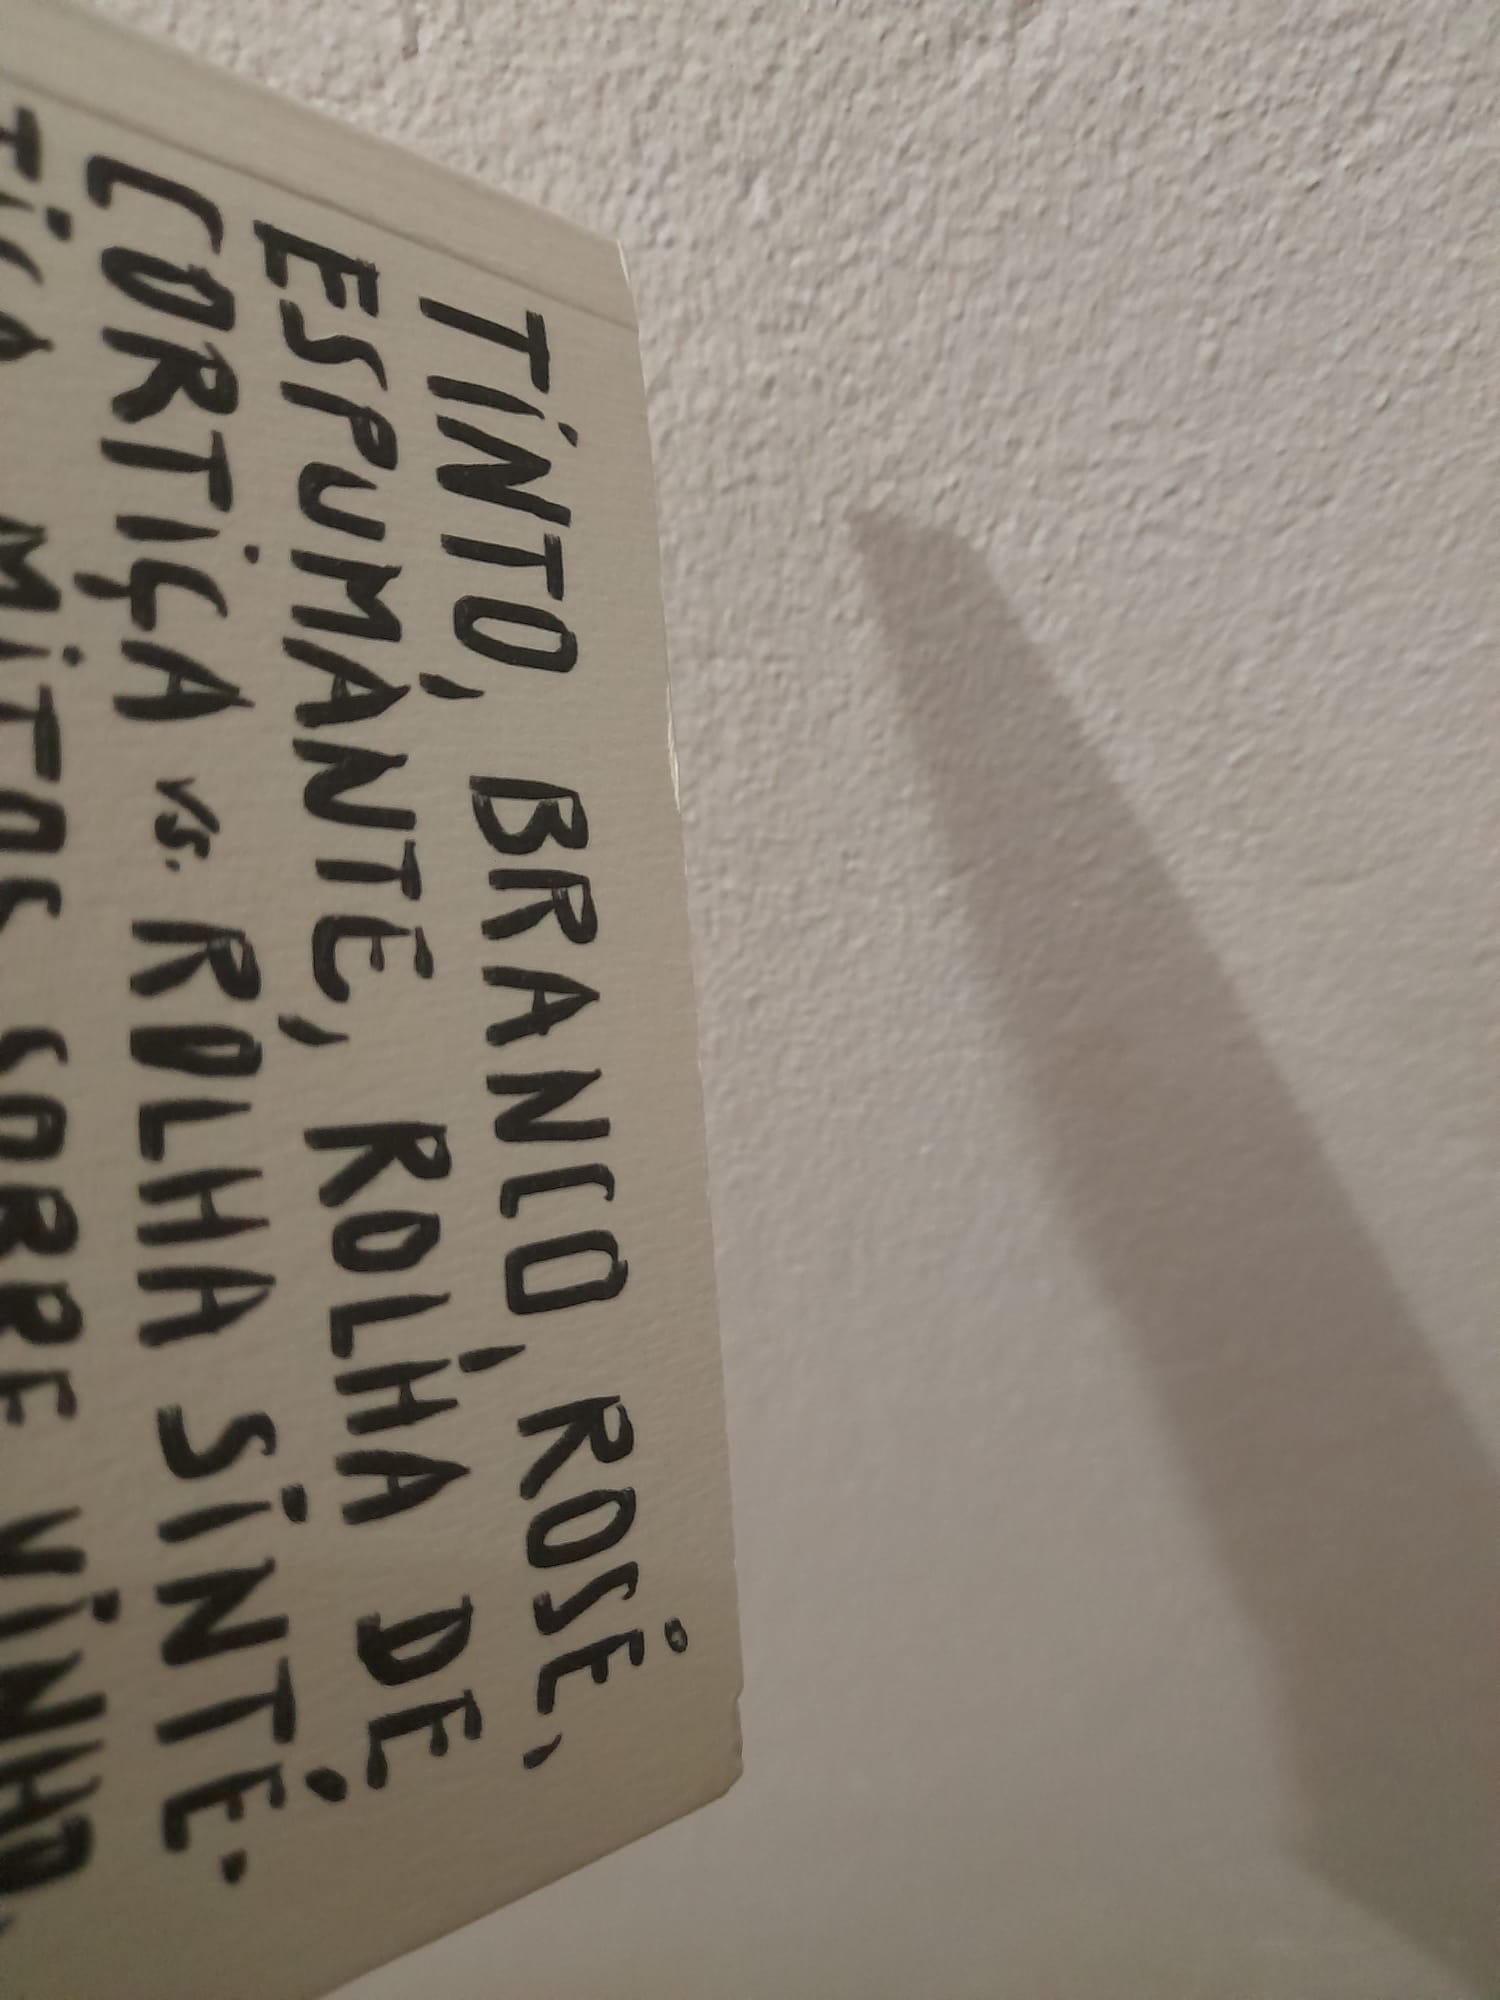 TINTO, BRANCO, ROSÉ,
ESPUMANTE, ROLHA DE
CORTIÇA VS. ROLHA SINTÉ-
TICA, MITOS SOBRE VINHO,